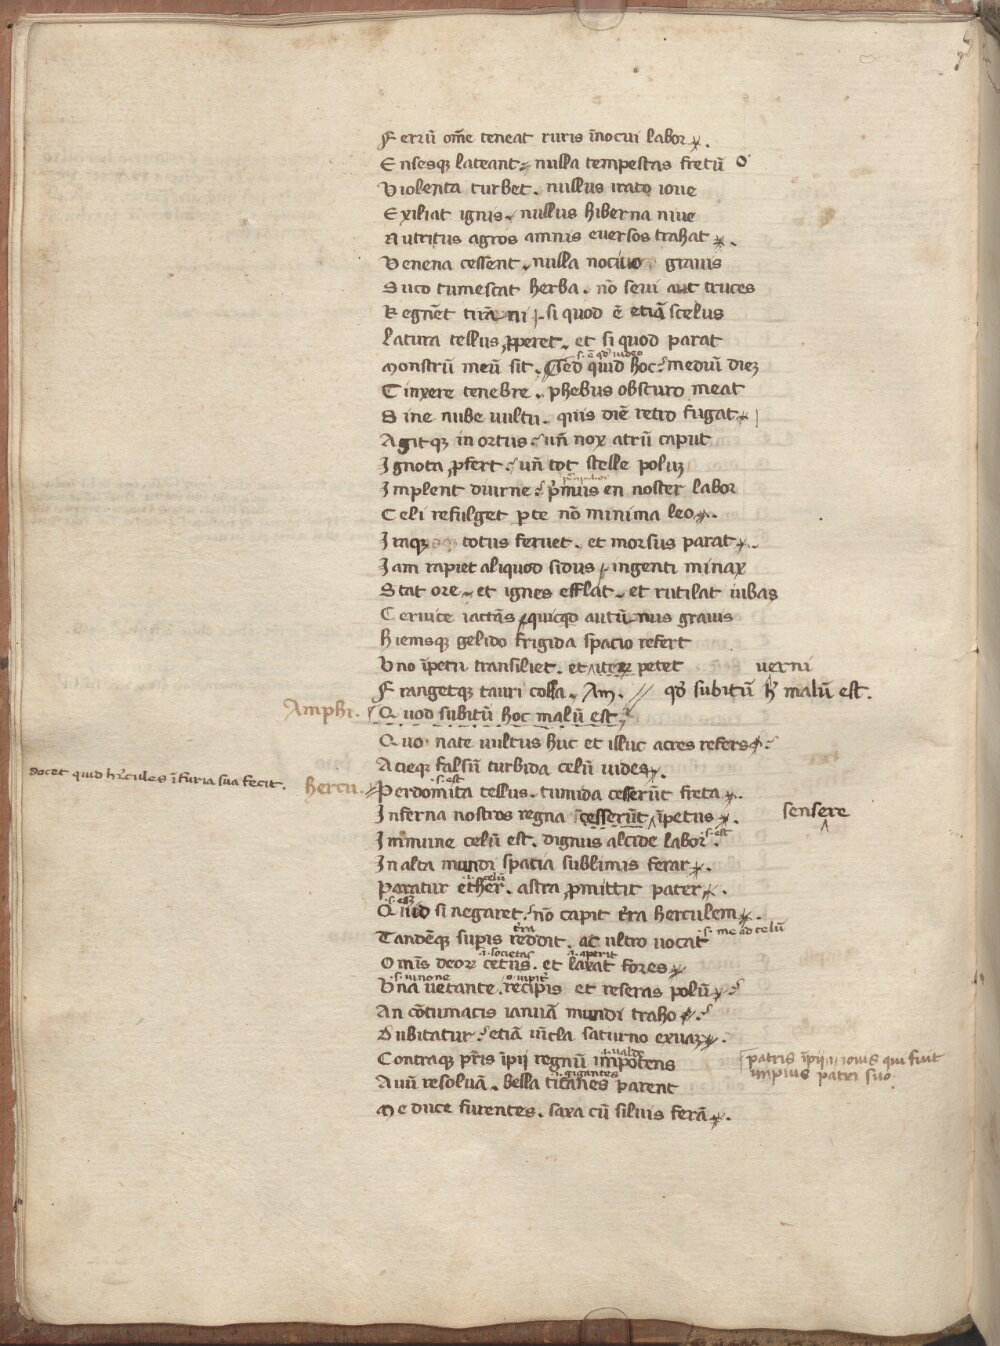 Ferrū om̄e teneat ruris īnocui labor.
Ensesqꝫ lateant. nulla tempestas fretū
Violenta turbet. nullus irato ioue
Exiliat ignis. nullus hiberna niue
Nutritus agros amnis euersos trahat.
Venena cessent. nulla nociuo grauis
Suco tumescat herba. nō seui aut truces
Regnēt tirāni si quod ē etiā scelus
Latura tellus ꝓperet. et si quod parat
Monstrū meū sit. Sed quid hoc: mediū diē
s. ē qđ uideo
Cinxere tenebre. phebus obscuro meat
Sine nube uultu. quis diē retro fugat
Agitqꝫ in ortus: un̄ nox atrū caput
Ignota ꝓfert: un̄ tot stelle polū
Implent diurne: p̄mus en noster labor
Celi refulget ꝑte nō minima leo.
Iraqꝫ totus feruet. et morsus parat.
Iam rapiet aliquod sidus ingenti minax
Stat ore. et ignes efflat. et rutilat iubas
Ceruice iactās quicqd autūnus grauis
Hiemsqꝫ gelido frigida spacio refert
Vno īpetu transiliet. et petet uerni
Frangetqꝫ tauri colla. Am. qđ subitū h̄ malū est.
Amphi. Quod subitū hoc malū est
Quo nate uultus huc et illuc acres refers:
Acieqꝫ falsū turbida celū uides.
docet quid h̄cules ī furia sua fecit.
Hercu. Perdomita tellus. tumida cesserūt freta.
s. est
Inferna nostros regna cesserūt īpetus. sensere
Immune celū est. dignus alcide labor.
s. est
In alta mundi spatia sublimis ferar.
Paratur ether. astra ꝓmittit pater.
.i. celū
Quid si negaret: nō capit t̄ra herculem.
s. est
Tandēqꝫ suꝑis reddit. ac ultro uocat
t̄ra
s. me ad celū
Om̄is deoꝝ cetus. et laxat fores
.i. societas .i. aperit
Vna uetante. recipis et reseras polū:
s. iunone
An cōtumacis ianuā mundi traho:
Dubitatur: etiā uīcla saturno exuā.
Contraqꝫ pr̄is īpij regnū impotens
.i. ualde
patris īpij .i. iouis qui fuit
impius patri suo.
Auū resoluā. bella titanes parent
.i. gigantes
Me duce furentes. saxa cū siluis ferā.